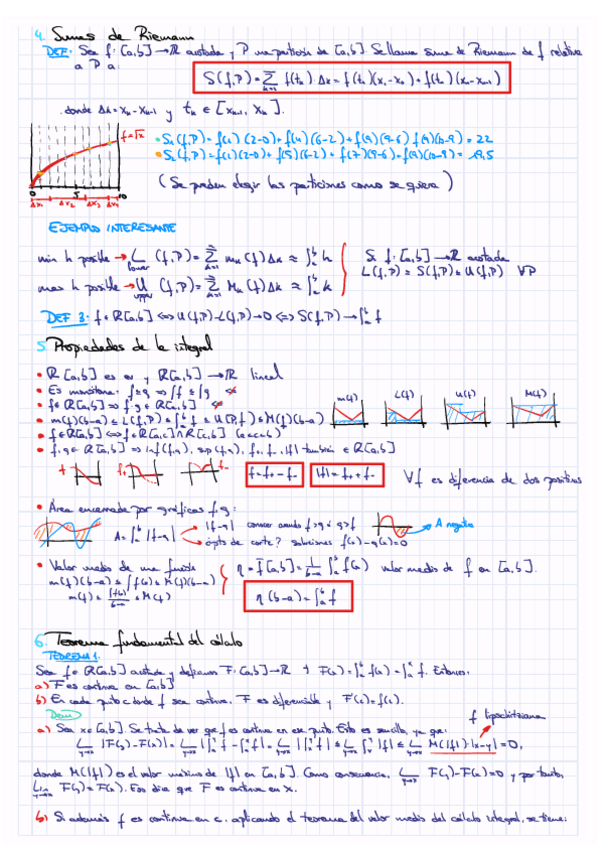 4. Sumas de Riemann
DEF: Sea f: [a,b] → ℝ acotada y P una partición de [a,b]. Se llama suma de Riemann de f relativa
a P a:
S(f,P) = Σ f(tₖ) Δx = f(t₁)(x₁-x₀) + f(tₙ)(xₙ-xₙ₋₁)
donde Δx = xₖ - xₖ₋₁ y tₖ ∈ [xₖ₋₁, xₖ].
f=√x
0 5 10
Δx₁ Δx₂ Δx₃ Δx₄
(Se pueden elegir las particiones como se quiera)
EJEMPLO INTERESANTE
min h posible → L (f,P) = Σ mₖ(f) Δx ≈ ∫ h
lower
max h posible → U (f,P) = Σ Mₖ(f) Δx ≈ ∫ k
upper
Si f: [a,b] → ℝ acotada
L(f,P) ≤ S(f,P) ≤ U(f,P) ∀P
DEF 3: f ∈ R[a,b] ⇔ U(f,P) - L(f,P) → 0 ⇔ S(f,P) → ∫ f
5. Propiedades de la integral
• R[a,b] es ev y R[a,b] → ℝ lineal
• Es monótona: f ≥ g ⇒ ∫f ≤ ∫g
• m(f)(b-a) ≤ L(f,P) ≤ ∫ f ≤ U(P,f) ≤ M(f)(b-a)
• f ∈ R[a,b] ⇔ f ∈ R[a,c] ∧ R[c,b] (a<c<b)
• f, g ∈ R[a,b] ⇒ inf(f,g), sup(f,g), f₊, f₋, |f| también ∈ R[a,b]
m(f) L(f) U(f) M(f)
f f₊ f₋
f = f₊ - f₋ |f| = f₊ + f₋ ∀f es diferencia de dos positivas
• Área encerrada por gráficas f g:
A = ∫ |f-g|
|f-g| conocer cuando f>g ó g>f
¿pts de corte? soluciones f(x)-g(x)=0
A negativa
• Valor medio de una función
m(f)(b-a) ≤ ∫f(x) ≤ M(f)(b-a)
m(f) ≤ ∫f(x)/(b-a) ≤ M(f)
η = f̄[a,b] = 1/(b-a) ∫ f(x) valor medio de f en [a,b].
η (b-a) = ∫ f
6. Teorema fundamental del cálculo
TEOREMA 1.
Sea f ∈ R[a,b] acotada y definimos F: [a,b] → ℝ F(x) = ∫ f(x) = ∫ f. Entonces:
a) F es continua en [a,b]
b) En cada punto c donde f sea continua, F es diferenciable y F'(c) = f(c).
Dem
f lipschitziana
a) Sea x ∈ [a,b]. Se trata de ver que f es continua en ese punto. Esto es sencillo, ya que:
lim |F(y)-F(x)| = lim |∫ f - ∫ f| = lim |∫ f| ≤ lim ∫ |f| ≤ lim M(|f|)·|x-y| = 0,
donde M(|f|) es el valor máximo de |f| en [a,b]. Como consecuencia, lim F(y)-F(x)=0 y por tanto,
lim F(y) = F(x). Eso dice que F es continua en x.
b) Si además f es continua en c, aplicando el teorema del valor medio del cálculo integral, se tiene: